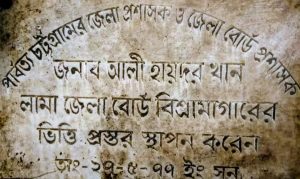 পার্বত্য চট্টগ্রামের জেলা প্রশাসক ও জেলা বোর্ড প্রশাসক
জনাব আলী হায়দর খান
লামা জেলা বোর্ড বিশ্রামাগারের
ভিত্তি প্রস্তর স্থাপন করেন
তাং-২৭-৫-৭৭ ইং সন